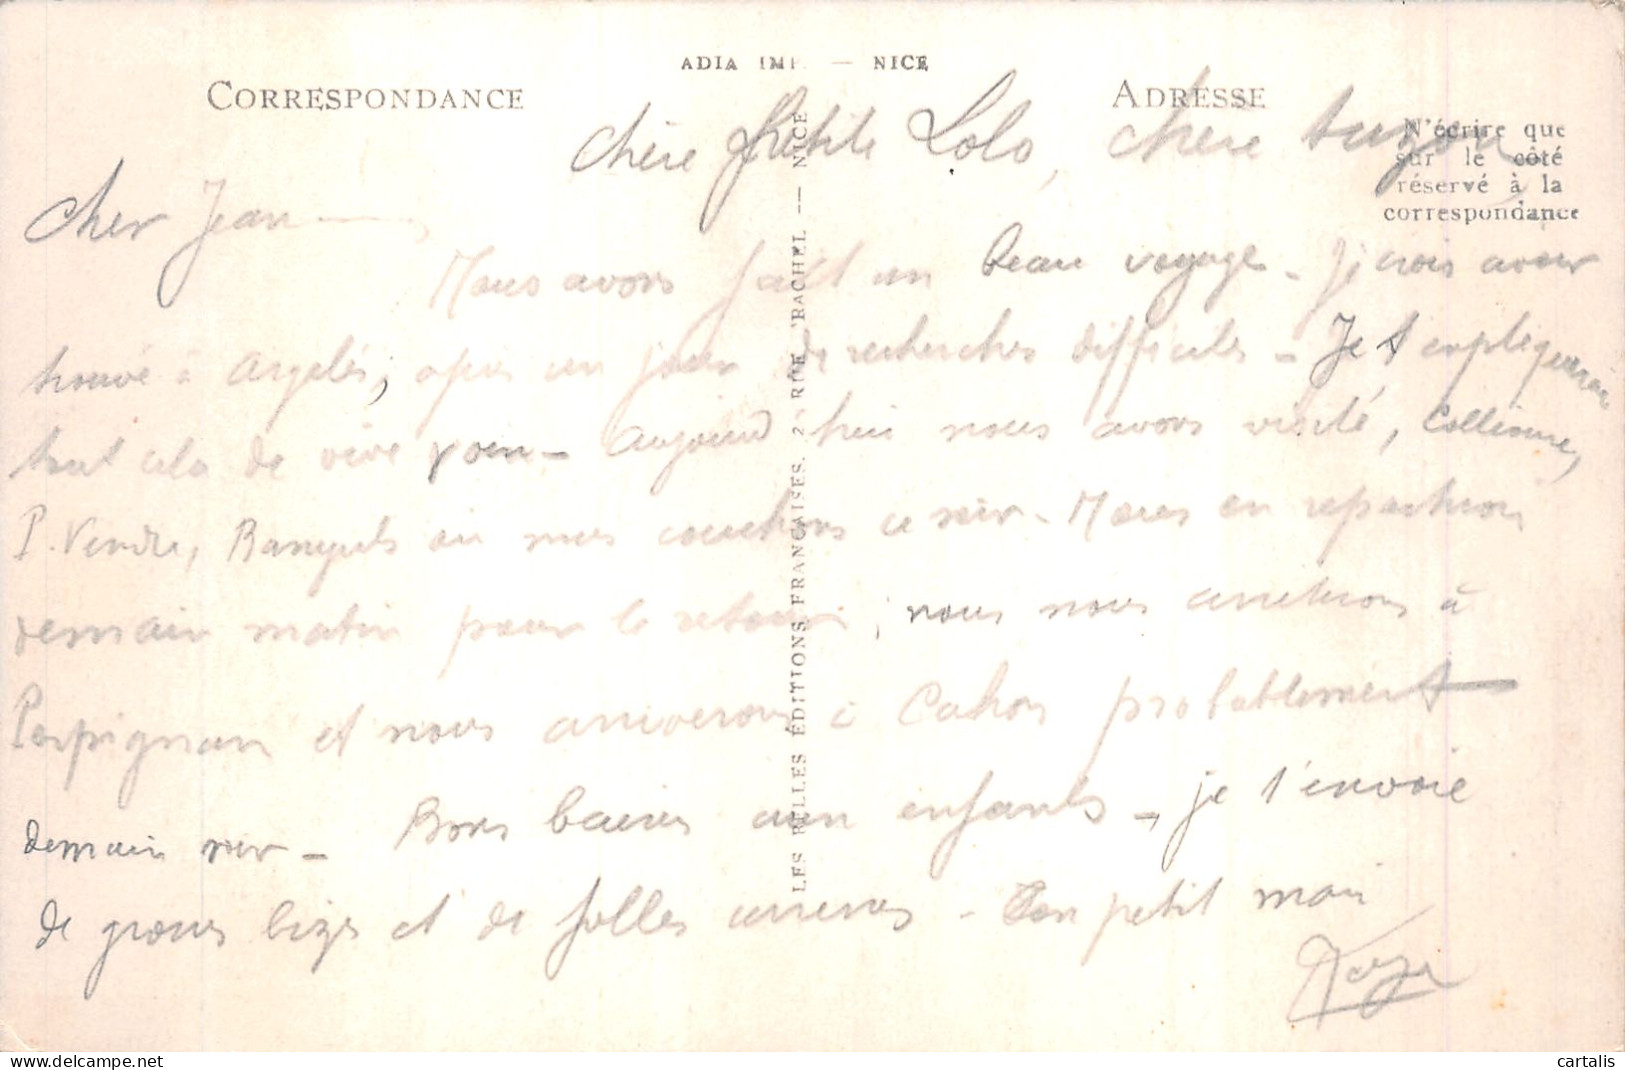 ADIA IMP. — NICE
CORRESPONDANCE
ADRESSE
N'écrire que
sur le côté
réservé à la
correspondance
LES BELLES ÉDITIONS FRANÇAISES. 2, RUE RACHEL — NICE
Chère Petite Lolo, Chère Suzon,
Cher Jean
Nous avons fait un beau voyage - Je crois avoir
trouvé à Argelès, après un jour de recherches difficiles - Je t'expliquerai
tout cela de vive voix - Aujourd'hui nous avons visité, Collioure,
P. Vendre, Banyuls où nous couchons ce soir - Nous en repartirons
demain matin pour le retour, nous nous arrêterons à
Perpignan et nous arriverons à Cahors probablement
demain soir - Bons baisers aux enfants - je t'envoie
de grosses bizes et de folles caresses - Ton petit mari
Roger
cartalis